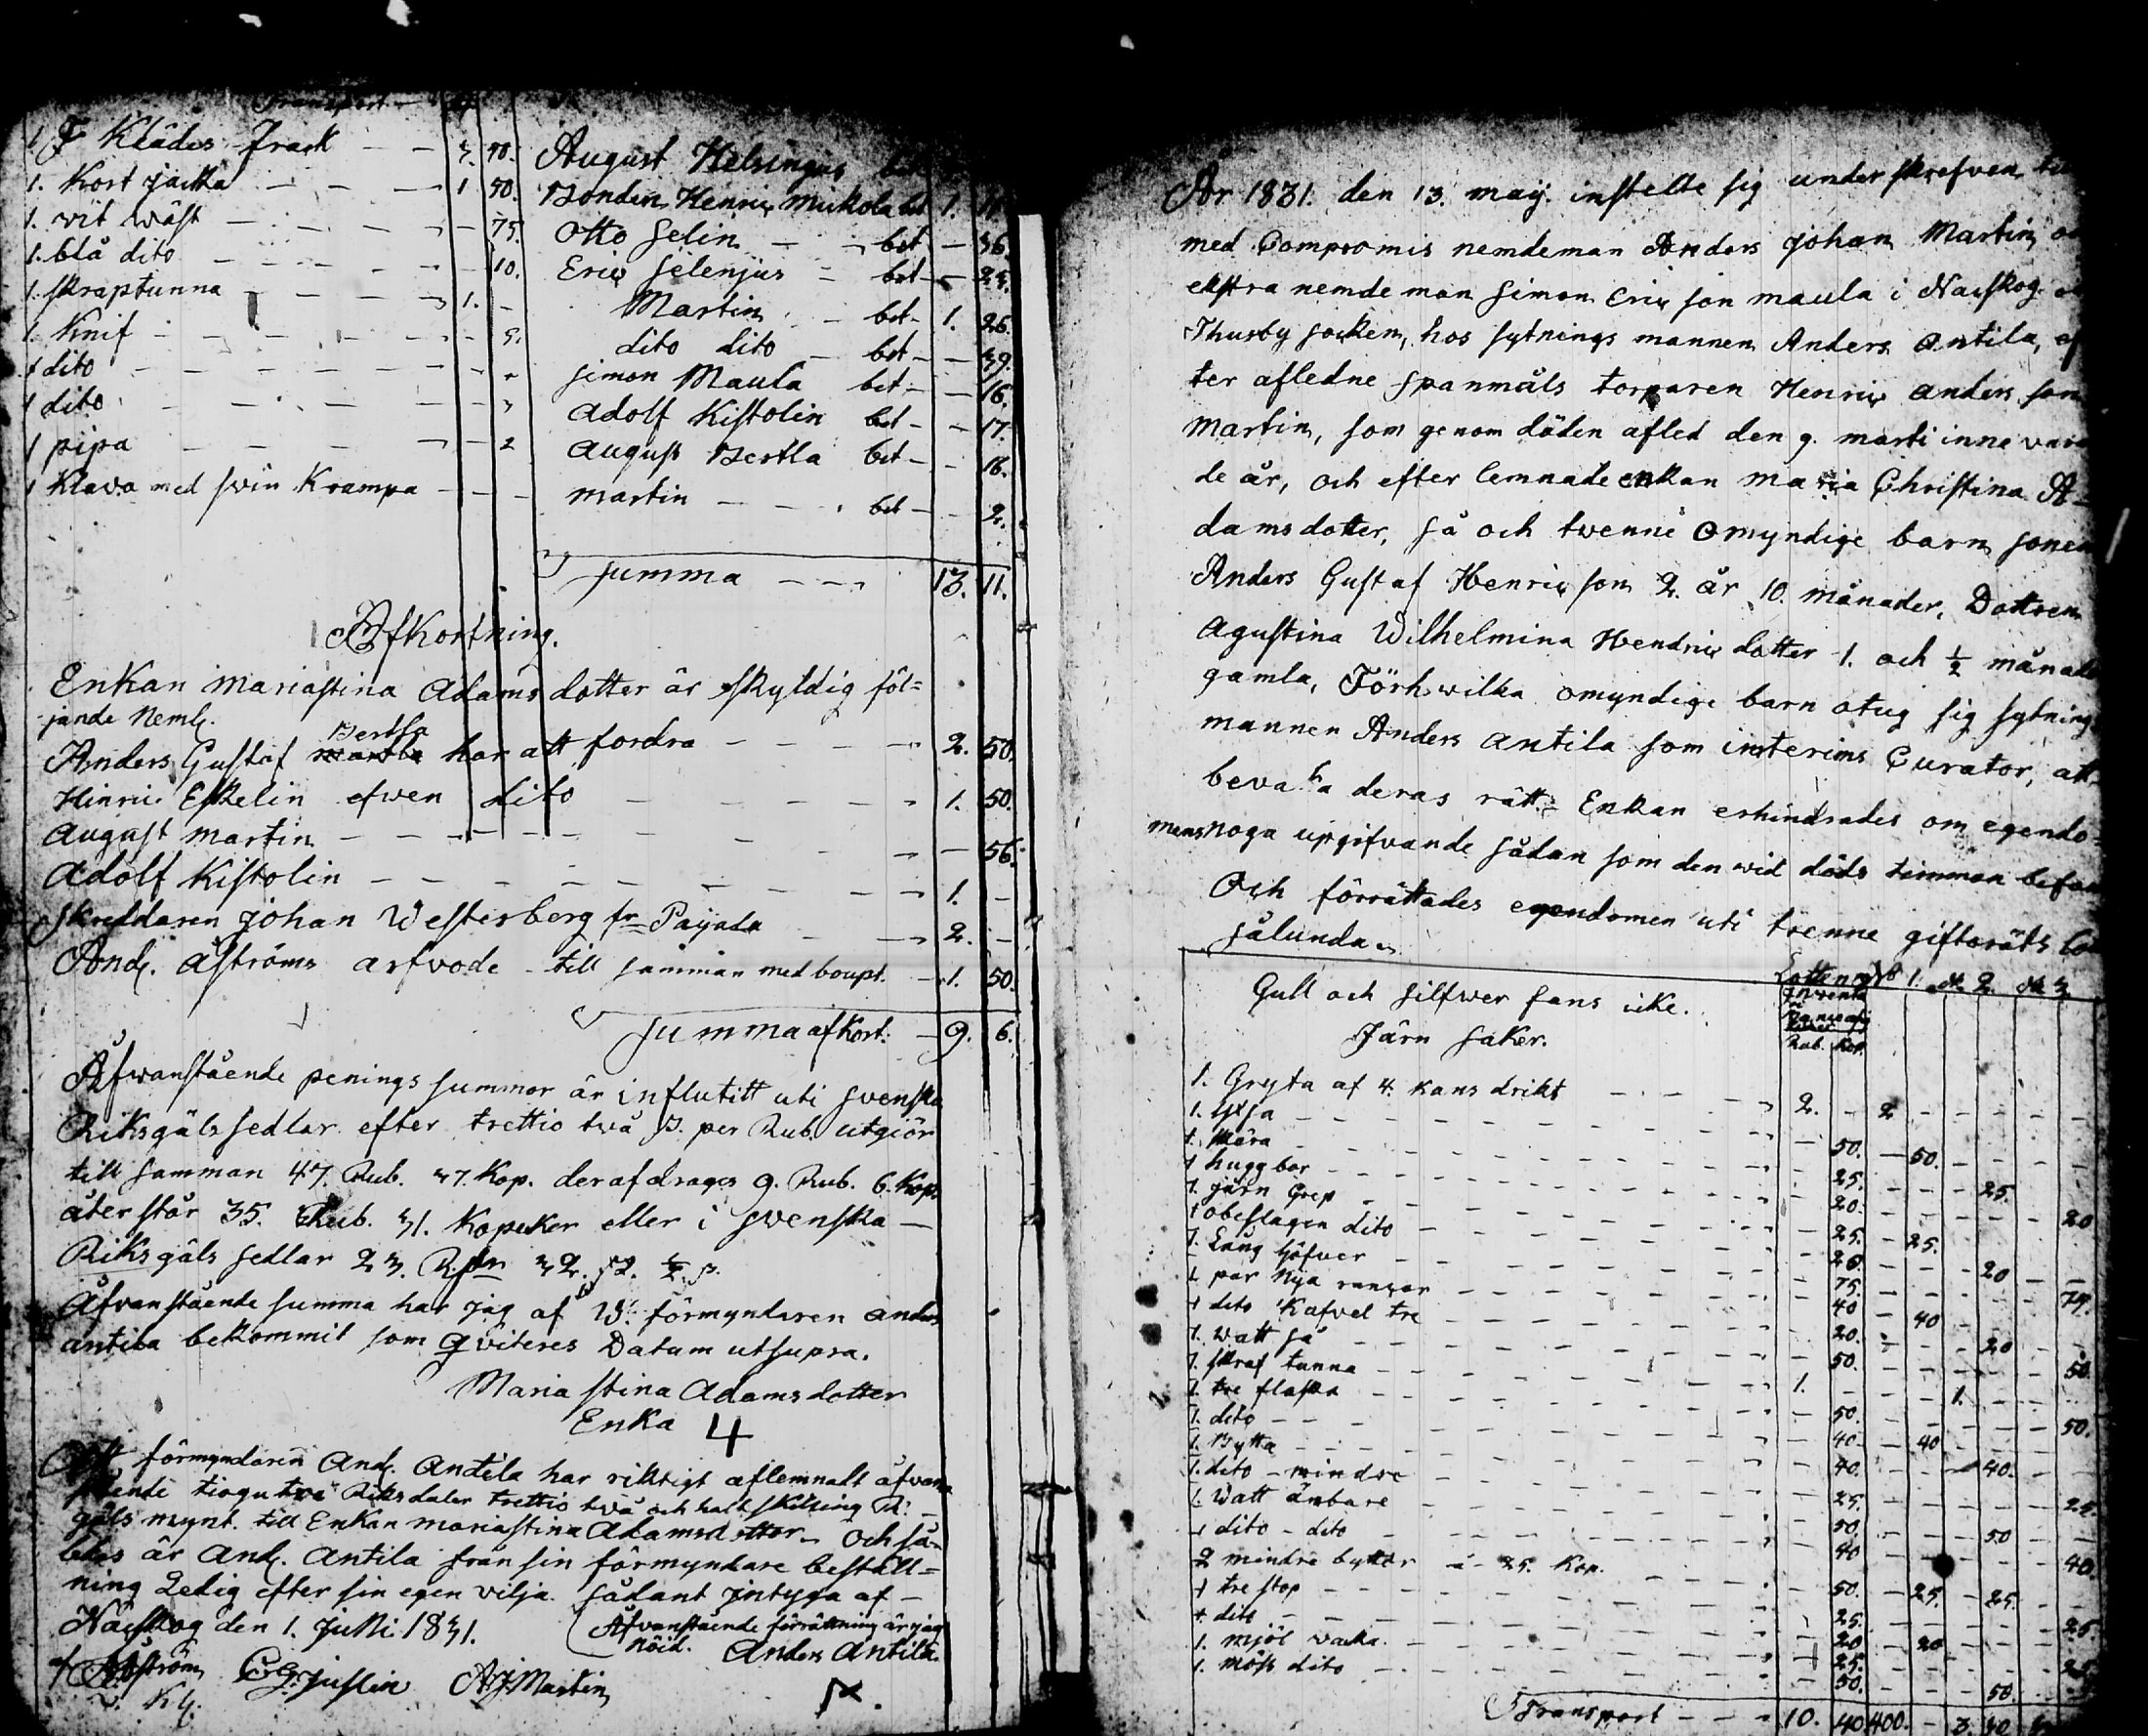 Transport
1 Klädes Frack - - 3. 40. August Helsingius bet
1. Kort jacka - - - 1 50. Bonden Henric Mickola bet 1. 11.
1. vit wäst - - - - 75. Otto Selin - - bet - 36.
1. blå dito - - - - 10. Eric Selenjus - bet - 25.
1. skraptunna - - - 1. - Martin - bet - 1. 26.
1. Knif - - - - - 5. dito dito - bet - - 39.
1 dito - - - - - Simon Maula bet - - 16.
1 dito - - - - - Adolf Kistolin bet - - 17.
1 pipa - - - - 2 August Bertla bet - - 16.
1 Klava med swin Krampa - - - martin - - bet - - 2.
Summa - - - 13. 11.
Afkortning.
Enkan Mariastina Adams dotter är skyldig föl=
jande Neml.
Bertla
Anders Gustaf har att fordra - - - - 2. 50.
Hinric Eskelin efwen dito - - - - 1. 50.
August martin - - - - - - - 56.
Adolf Kistolin - - - - - - - 1. -
Skreddaren Johan Westerberg fr. Payala - - 2. -
And. Åströms arfvode till samman med boupt. - 1. 50.
Summa afkort. - 9. 6.
Åfwanstående penings summor är influtitt uti svenska
Riksgäls sedlar efter trettio två S. per Rub. utgiör
till samman 47. Rub. 37. Kop. deraf drages 9. Rub. 6. Kop.
återstår 35. Rub. 31. Kopeker eller i svenska -
Riksgäls sedlar 23. Rdr 32. 1/2 s.
Åfvanstående summa har jag af W. förmyndaren anders
antila bekommit som qviteres Datum utsupra.
Maria stina Adams dotter
Enka 4
Att förmyndaren And. Antila har riktigt aflemnalt åfvan
stående tiogu tre Riksdaler trettio två och halt skilling R.
gäls mynt. till Enkan mariastina Adamsdotter - Och så-
ledes är And. Antila från sin förmyndare beställ=
ning Ledig efter sin egen vilja. sådant intyga af -
Nackskog den 1. Julli 1831. Åfvanstående förrättning är jag
nöid. Anders Antila.
Åström C G Juslin A J Martin
År 1831. den 13. maij. instelte sig underskrefven
med Compromis nemdeman Anders Johan Martin
ekstra nemde man Simon Eric son maula i Nackskog
Thusby socken, hos sytnings mannen Anders Antila, ef
ter afledne spanmåls torparen Henric anders son
Martin, som genom döden afled den 9. marti inne vara
de år, och efter lemnade enkan maria Christina A-
dams dotter, så och twenne omyndige barn sonen
Anders Gustaf Henric son 2. år 10. månader, Dottren
Agustina Wilhelmina Hendric dotter 1. och 1/2 månad
gamla, Förhwilka omyndige barn åtug sig sytnings
mannen Anders Antila som interims Curator, att
bevaka deras rätt. Enkan erhindrades om egendo=
mens noga upgifvande sådan som den wid döds timman befans
Och förrättades egendomen uti trenne giftoräts
sålunda
Lotten No 1. 2. 3.
Gull och silfwer fans icke.
Järn saker. Rub. Kop.
1. Gryta af 4. kans drikt - - - 2. - 2 - - - -
1. Yxa - - - - 50. - 50. - - -
1. skära - - - - 25. - - - 25. -
1 huggbor - - - - 20. - - - - 20
1. järn Grep - - - - 25. - 25. - -
1 obeslagen dito - - - - 20. - - - 20 - -
1. Lång - - - - 75. - - - - 75.
1 par Nya - - - - 40 - 40 - -
1 dito Kafvel tre - - - - 20. - - - 20 -
1. watt så - - - - 50. - - - - 50.
1. skraf tunna - - - 1. - - - 1. - -
1. tre flaska - - - - 50. - - - - 50.
1. dito - - - - 40. - 40 - -
1. Bytta - - - - 40. - - - 40. - -
1. dito - mindre - - - - 25. - - - - 25.
1. Watt ämbare - - - - 50. - - - 50 -
1 dito - dito - - - - 40 - - - - 40.
2 mindre byttor á 25. Kop. - - 50. - 25. - 25. -
1 tre stop - - - - 25. - - - - 25.
1 dito - - - - 20 - 20 - -
1. mjöl - - - - 25.
1. dito - - - - 50. - - - 50.
Transport - - - 10. 40